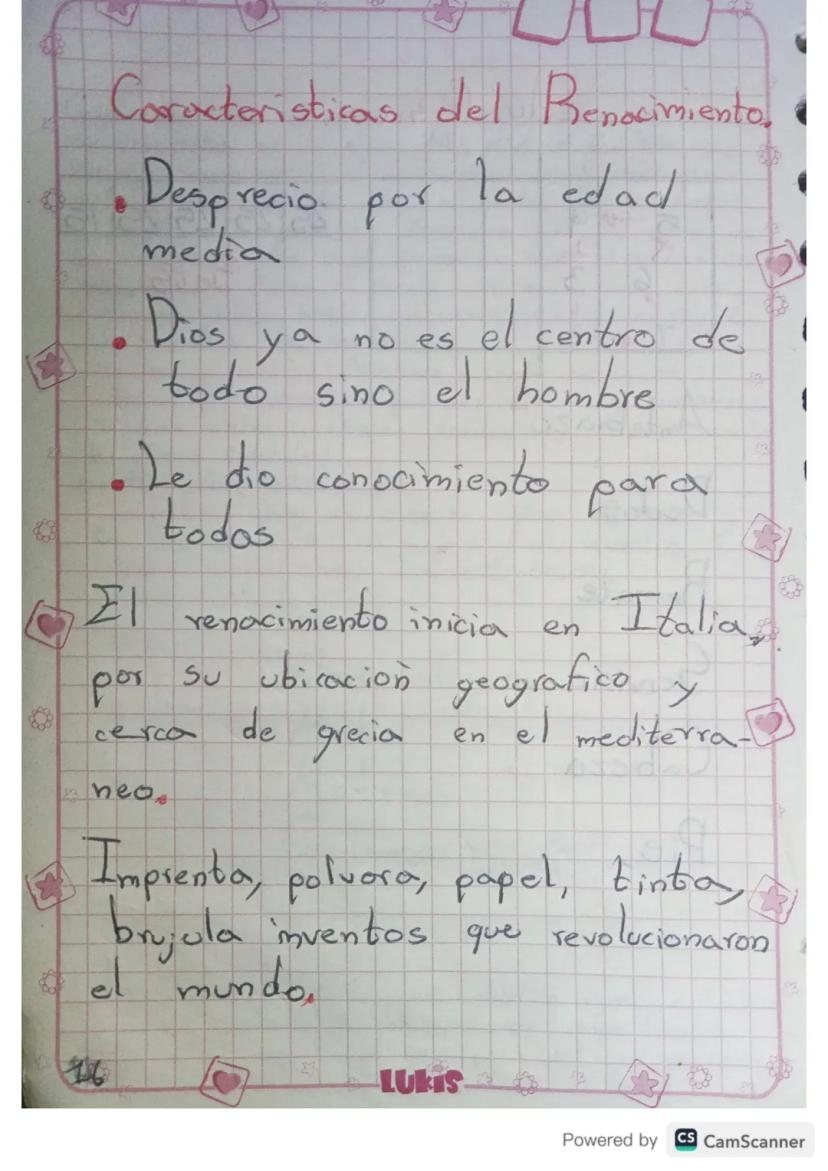 Caracteristicas del Renacimiento.
• Desprecio por la edad
media
• Dios ya no es el centro de
todo sino el hombre
• Le dio conocimiento para
todos
El renacimiento inicia en Italia,
por su ubicación geografico y
cerca de grecia en el mediterra-
neo.
Imprenta, polvora, papel, tinta,
brujula inventos que revolucionaron
el mundo.
16
LUKIS
Powered by CS CamScanner